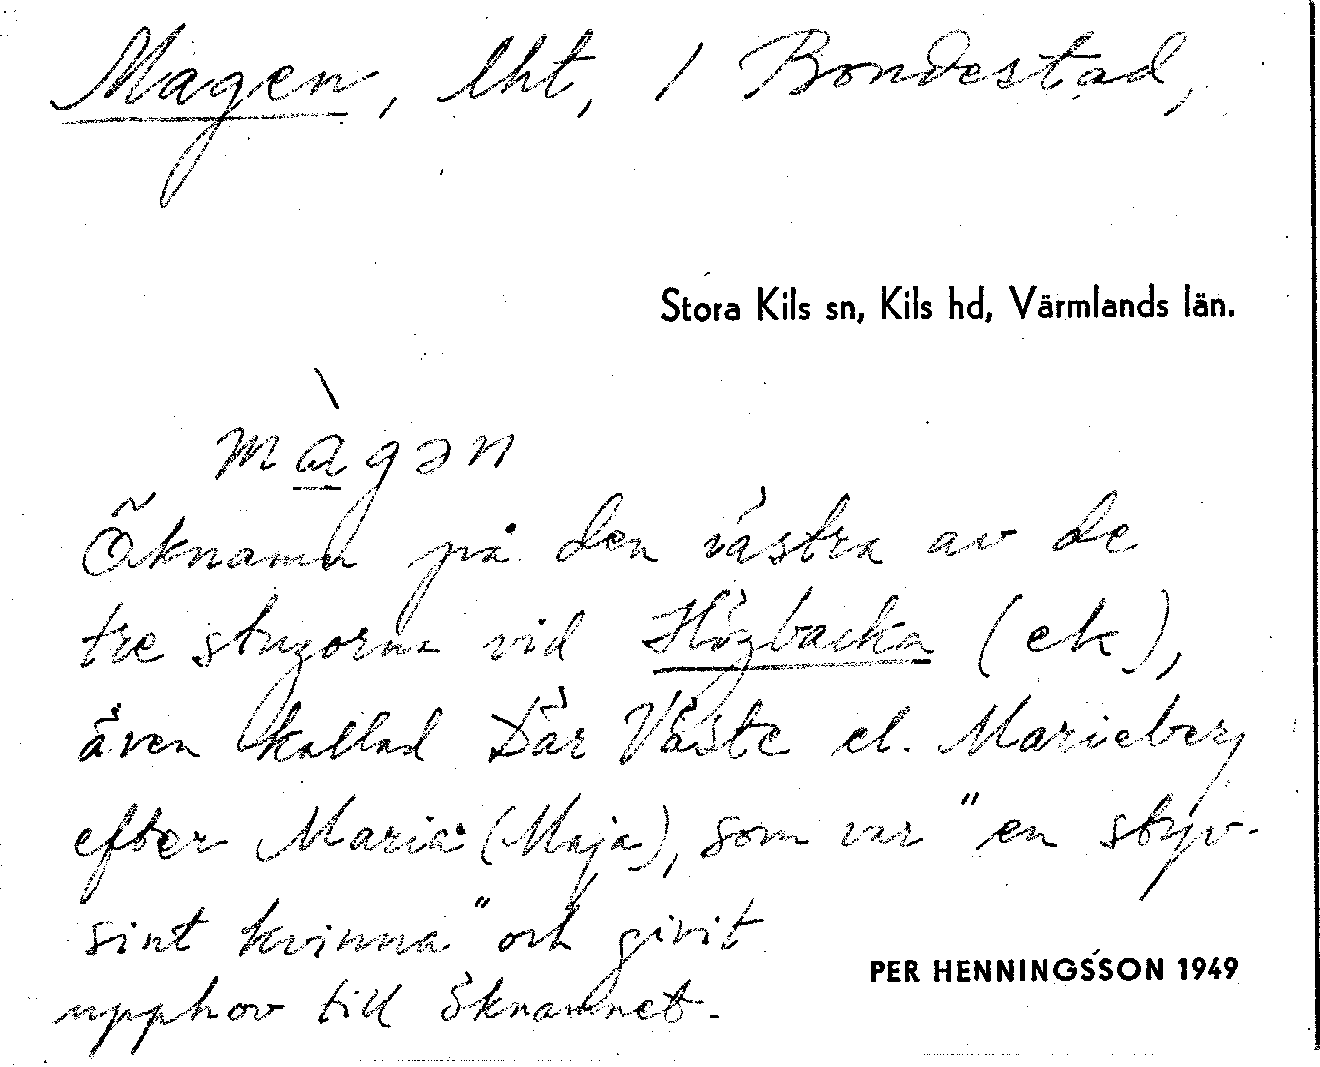 Magen, lht, 1 Bondestad,
Stora Kils sn, Kils hd, Värmlands län.
màgən
Öknamn på den västra av de
tre stugorna vid Högbacka (ek),
även kallad Där Väste el. Marieberg
efter Maria (Maja), som var "en styv-
sint kvinna" och givit
upphov till öknamnet.
PER HENNINGSSON 1949